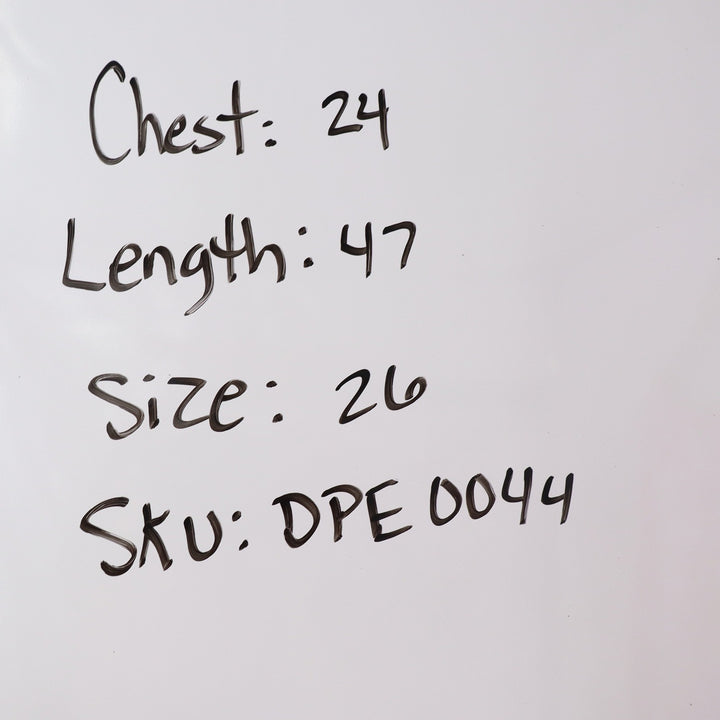 Chest: 24
Length: 47
Size: 26
SKU: DPE 0044